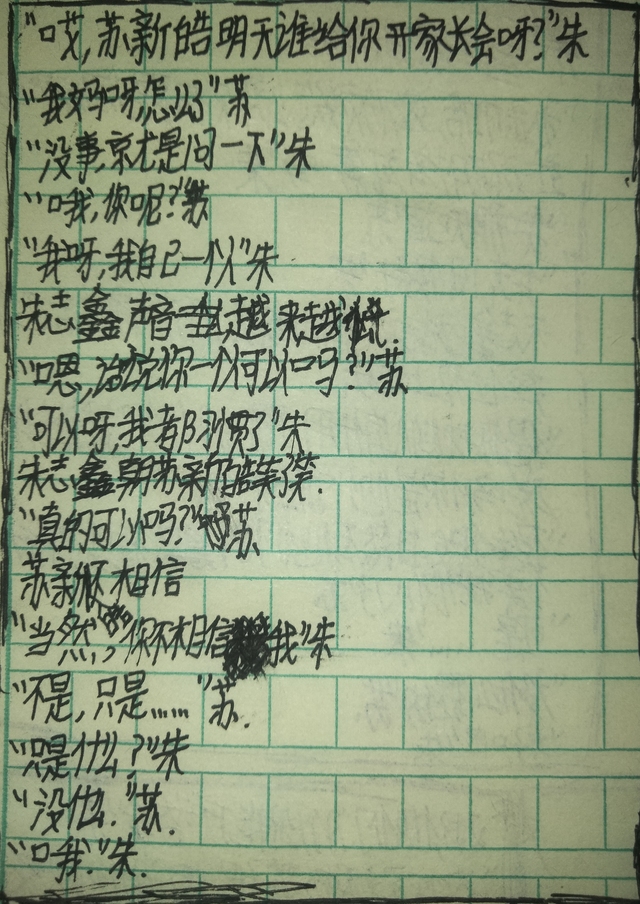 "哎,苏新皓明天谁给你开家长会呀?"朱
"我妈呀,怎么了"苏
"没事,就是问一下"朱
"哦,你呢?"苏
"我呀,我自己一个人"朱
朱志鑫声音越来越低.
"嗯,你一个人可以吗?"苏
"可以呀,我都习惯了"朱
朱志鑫朝苏新皓笑了笑.
"真的可以吗?"苏
苏新怀相信
"当然,你不相信我"朱
"不是,只是……"苏.
"只是什么?"朱
"没什么."苏.
"哦."朱.